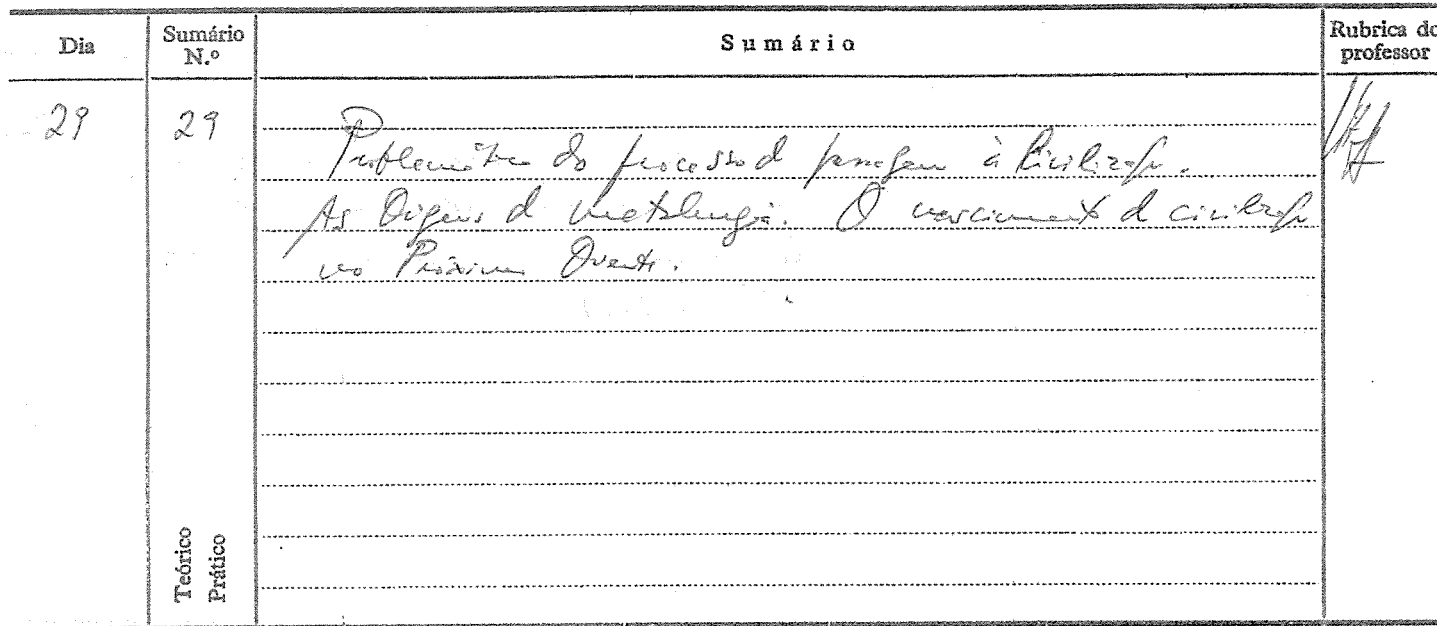 Dia
Sumário
N.º
Sumário
Rubrica do
professor
29
29
Problemática do processo d passagem à Civilização.
As Origens d metalurgia. O nascimento d civilização
no Próximo Oriente.
Teórico
Prático